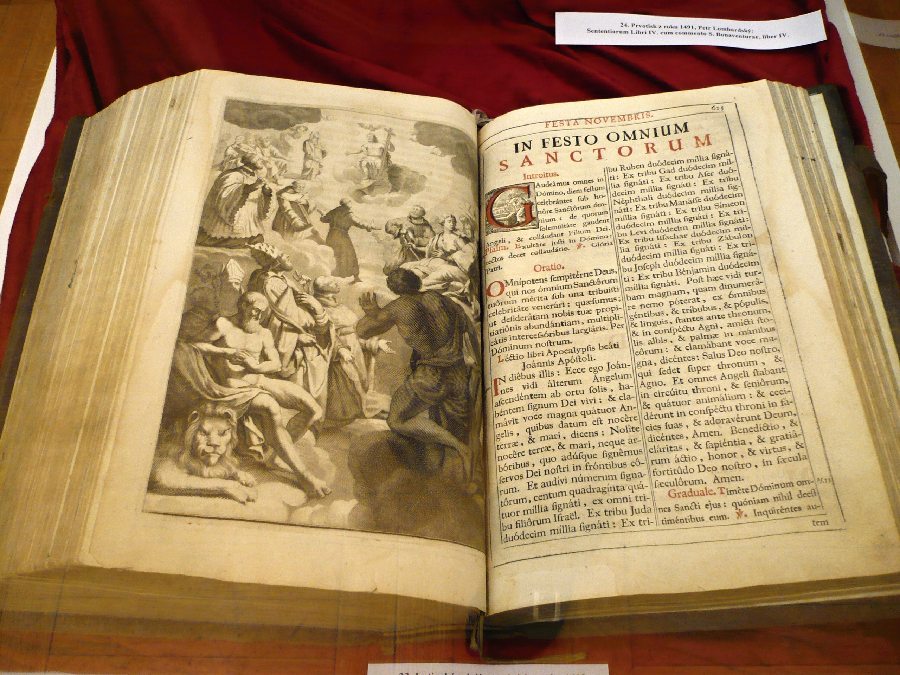 24. Prvotisk z roku 1491, Petr Lombardský:
Sententiarum Libri IV. cum commento S. Bonaventurae, liber IV.
FESTA NOVEMBRIS.
625
IN FESTO OMNIUM
SANCTORUM
Introitus.
GAudeámus omnes in
Dómino, diem festum
celebrántes sub ho-
nóre Sanctórum óm-
nium: de quorum
solemnitáte gaudent
Angeli, & colláudant Fílium Dei.
Psalmus. Exultáte justi in Dómino:
rectos decet collaudátio. ℣. Glória
Patri.
Oratio.
OMnípotens sempitérne Deus,
qui nos ómnium Sanctórum
tuórum mérita sub una tribuísti
celebritáte venerári: quæsumus;
ut desiderátam nobis tuæ propi-
tiatiónis abundántiam, multipli-
cátis intercessóribus largiáris. Per
Dóminum nostrum.
Léctio libri Apocalypsis beáti
Joánnis Apóstoli.
IN diébus illis: Ecce ego Joán-
nes vidi álterum Angelum
ascendéntem ab ortu solis, ha-
béntem signum Dei vivi: & cla-
mávit voce magna quátuor An-
gelis, quibus datum est nocére
terræ, & mari, dicens: Nolíte
nocére terræ, & mari, neque ar-
bóribus, quo adúsque signémus
servos Dei nostri in fróntibus eó-
rum. Et audívi númerum signa-
tórum, centum quadragínta quá-
tuor míllia signáti, ex omni tri-
bu filiórum Israël. Ex tribu Juda
duódecim míllia signáti: Ex tri-
bu Ruben duódecim míllia signá-
ti: Ex tribu Gad duódecim míl-
lia signáti: Ex tribu Aser duó-
decim míllia signáti: Ex tribu
Néphthali duódecim míllia sig-
náti: Ex tribu Manásse duódecim
míllia signáti: Ex tribu Símeon
duódecim míllia signáti: Ex tri-
bu Levi duódecim míllia signáti:
Ex tribu Issachar duódecim míl-
lia signáti: Ex tribu Zábulon
duódecim míllia signáti: Ex tri-
bu Joseph duódecim míllia signá-
ti: Ex tribu Bénjamin duódecim
míllia signáti. Post hæc vidi tur-
bam magnam, quam dinumerá-
re nemo póterat, ex ómnibus
géntibus, & tríbubus, & pópulis,
& linguis, stantes ante thronum,
& in conspéctu Agni, amícti sto-
lis albis, & palmæ in mánibus
eórum: & clamábant voce ma-
gna, dicéntes: Salus Deo nostro,
qui sedet super thronum, &
Agno. Et omnes Angeli stabant
in circúitu throni, & seniórum,
& quátuor animálium: & ceci-
dérunt in conspéctu throni in fá-
cies suas, & adoravérunt Deum,
dicéntes, Amen. Benedíctio, &
cláritas, & sapiéntia, & gratiá-
rum áctio, honor, & virtus, &
fortitúdo Deo nostro, in sæcula
sæculórum. Amen.
Graduale. Timéte Dóminum om-
nes Sancti ejus: quóniam nihil deest
timéntibus eum. ℣. Inquiréntes au-
tem